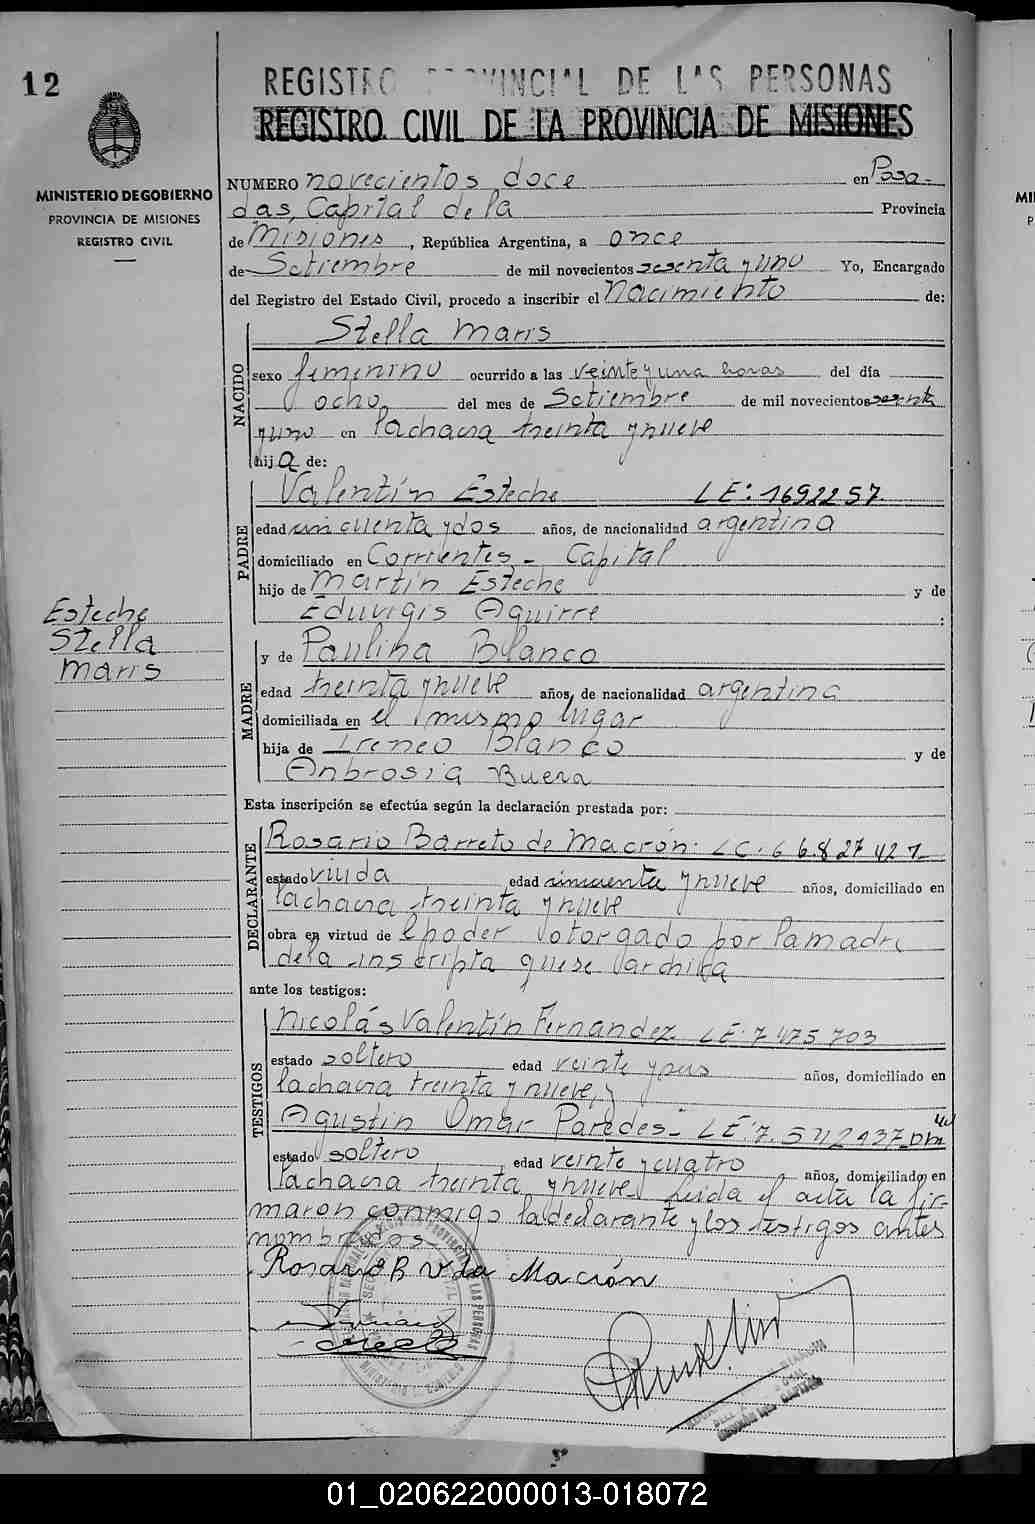 12
REGISTRO PROVINCIAL DE LAS PERSONAS
REGISTRO CIVIL DE LA PROVINCIA DE MISIONES
MINISTERIO DE GOBIERNO
PROVINCIA DE MISIONES
REGISTRO CIVIL
NUMERO novecientos doce en Posa-
das, Capital de la Provincia
de Misiones, República Argentina, a once
de Setiembre de mil novecientos sesenta y uno Yo, Encargado
del Registro del Estado Civil, procedo a inscribir el Nacimiento de:
NACIDO
Stella Maris
sexo femenino ocurrido a las veinte y una horas del día
ocho del mes de Setiembre de mil novecientos sesenta
y uno en la chacra treinta y nueve
hija de:
PADRE
Valentín Esteche LE: 1692257
edad cincuenta y dos años, de nacionalidad argentina
domiciliado en Corrientes - Capital
hijo de Martín Esteche y de
Eduvigis Aguirre :
Esteche
Stella
Maris
MADRE
y de Paulina Blanco
edad treinta y nueve años, de nacionalidad argentina
domiciliada en el mismo lugar
hija de Ireneo Blanco y de
Anbrosia Buera
Esta inscripción se efectúa según la declaración prestada por:
DECLARANTE
Rosario Barreto de Macrón. LC. 6.827427
estado viuda edad cincuenta y nueve años, domiciliado en
la chacra treinta y nueve
obra en virtud de el poder otorgado por la madre
de la inscripta que se archiva
ante los testigos:
TESTIGOS
Nicolás Valentín Fernandez LE. 7475703
estado soltero edad veinte y años, domiciliado en
la chacra treinta y nueve, y
Agustín Omar Paredes - LE: 7.542937
estado soltero edad veinte y cuatro años, domiciliado en
la chacra treinta y nueve - Leida el acta la fir-
maron conmigo la declarante y los testigos antes
nombrados -
Rosario B Vda Macrón
01_020622000013-018072